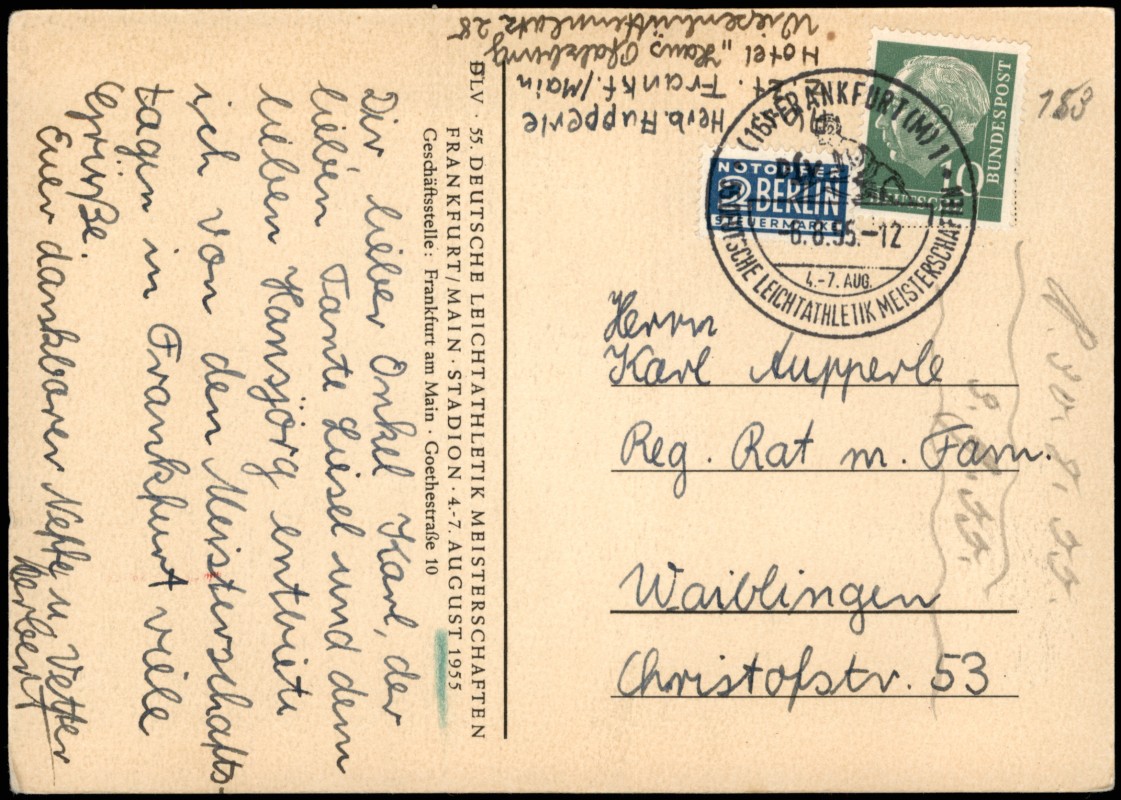 Herb. Aupperle
Zt. Frankf./Main
Hotel „Haus Pfalzburg
Wiesenhüttenplatz 28
Dir lieber Onkel Karl, der
lieben Tante Liesel und dem
lieben Hansjörg entbiete
ich von den Meisterschafts-
tagen in Frankfurt viele
Grüße.
Euer dankbarer Neffe u. Vetter
Herbert
DLV · 55. DEUTSCHE LEICHTATHLETIK MEISTERSCHAFTEN
FRANKFURT/MAIN · STADION · 4.-7. AUGUST 1955
Geschäftsstelle: Frankfurt am Main · Goethestraße 10
NOTOPFER
2 BERLIN
STEUERMARKE
10
BUNDESPOST
(16) FRANKFURT (M) 1
DLV
-6.8.55.-12
4.-7. AUG.
DEUTSCHE LEICHTATHLETIK MEISTERSCHAFTEN
Herrn
Karl Aupperle
Reg. Rat m. Fam.
Waiblingen
Christofstr. 53